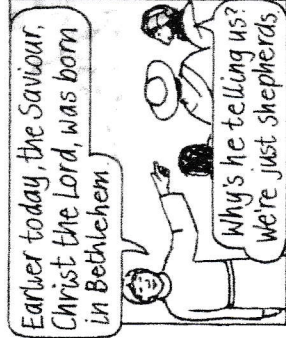 Earlier today, the Saviour,
Christ the Lord, was born
in Bethlehem
Why's he telling us?
We're just shepherds